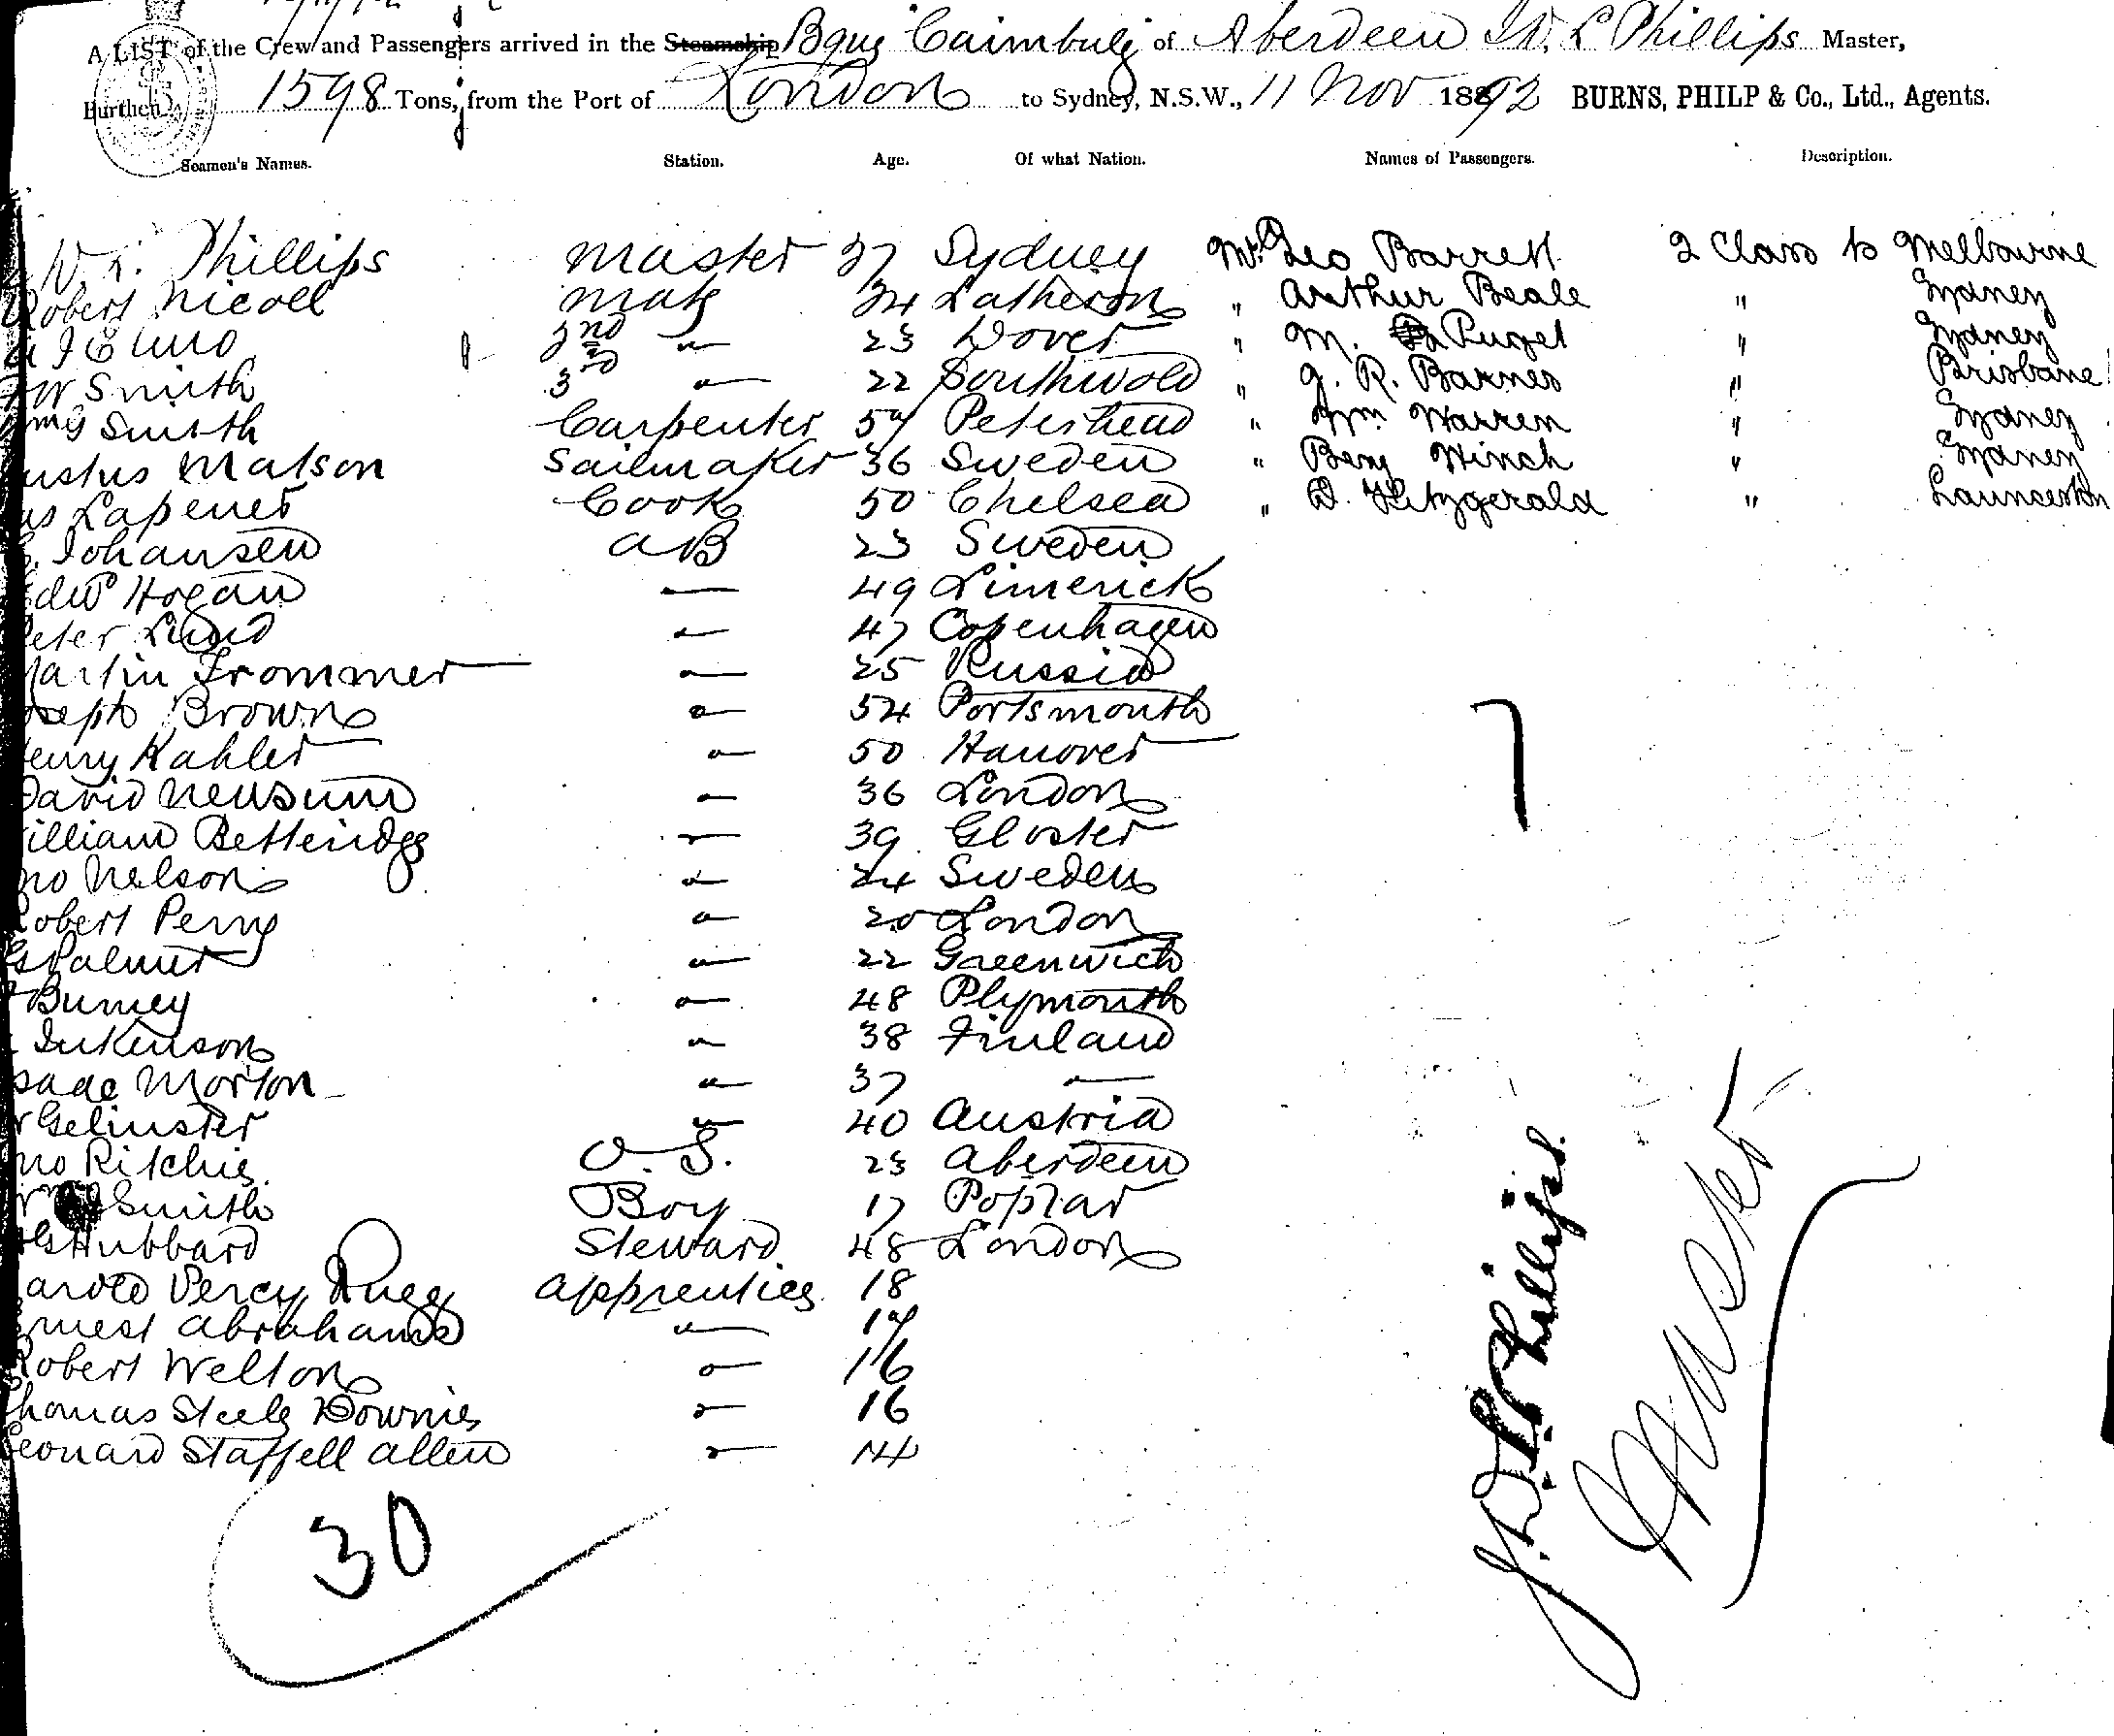 A LIST of the Crew and Passengers arrived in the Steamship Bque Cairnbulg of Aberdeen J. W. L Phillips Master,
Burthen 1598 Tons, from the Port of London to Sydney, N.S.W., 11 Nov 1892 BURNS, PHILP & Co., Ltd., Agents.
Seamen's Names. Station. Age. Of what Nation. Names of Passengers. Description.
W. L. Phillips Master 37 Sydney Mr. Geo Barrett 2 Class to Melbourne
Robert Nicoll Mate 34 Latheron " Arthur Beale " Sydney
2nd " 23 Dover " M. Puget " Sydney
W Smith 3rd " 22 Southwold " G. R. Barnes " Brisbane
Smith Carpenter 59 Peterhead " Wm. Warren " Sydney
ustus Matson Sailmaker 36 Sweden " Benj Winch " Sydney
as Lapener Cook 50 Chelsea " D. Fitzgerald " Launceston
Johansen AB 23 Sweden
Edwd Hogan — 49 Limerick
Peter Lund " 47 Copenhagen
Martin Frommer " 25 Russia
oseph Brown " 54 Portsmouth
Henry Kahler " 50 Hanover
David Newsum " 36 London
illiam Betteridge " 39 Gloster
no Nelson " 24 Sweden
Robert Perry " 20 London
Palmer " 22 Greenwich
Burney " 48 Plymouth
" 38 Finland
saac Morton " 37 "
Gelinster " 40 Austria
no Ritchie O. S. 23 Aberdeen
Smith Boy 17 Poplar
G Hubbard Steward 48 London
arold Percy Rugg Apprentice 18
rnest Abrahams " 19
Robert Welton " 16
Thomas Steele Downie " 16
Leonard Staffell Allen " 14
7
30
J. W. L. Phillips.
Master